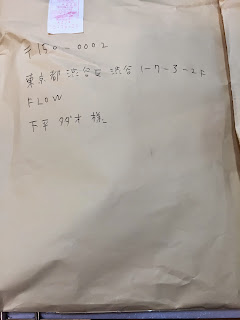 〒150-0002
東京都渋谷区渋谷1-7-3-2F
FLOW
下平 様